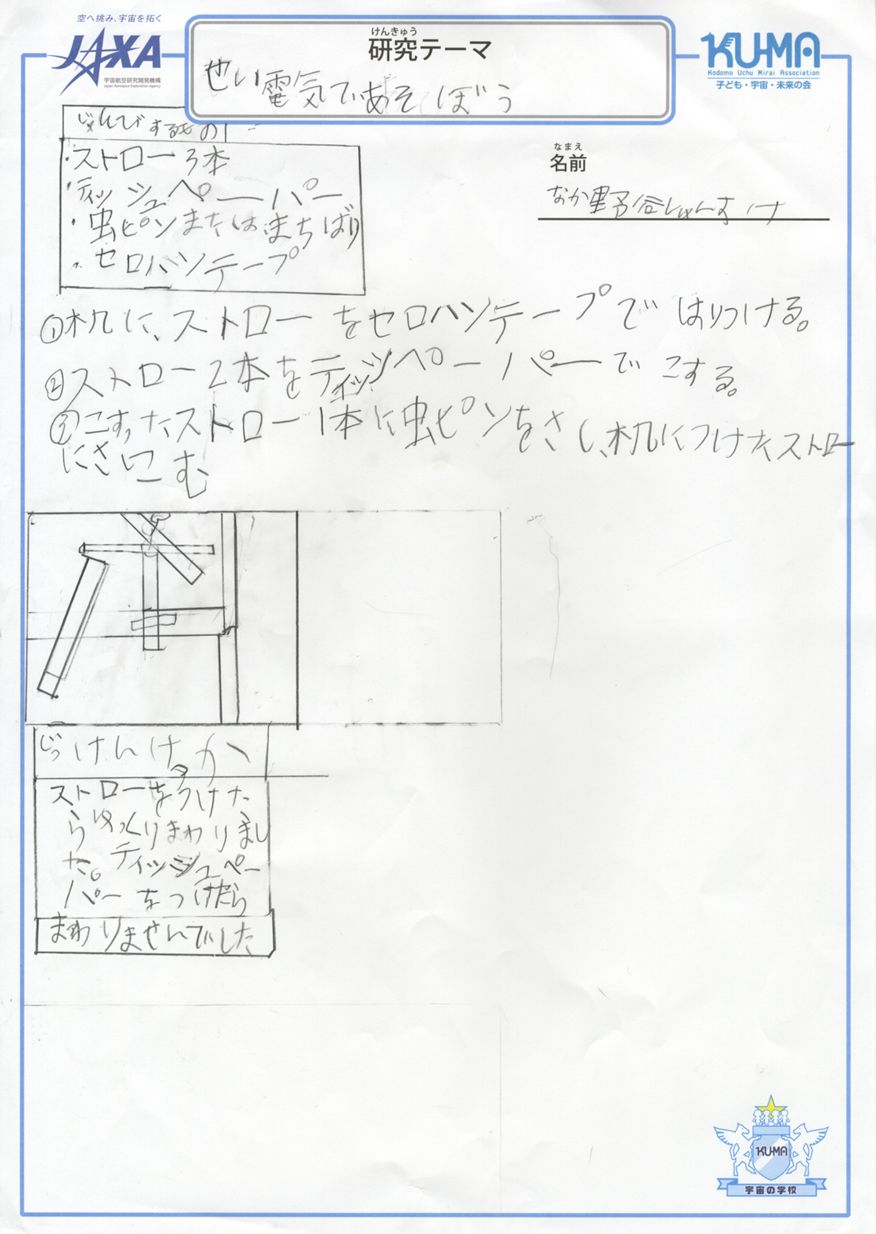 空へ挑み、宇宙を拓く
JAXA
宇宙航空研究開発機構
Japan Aerospace Exploration Agency
けんきゅう
研究テーマ
せい電気であそぼう
KU-MA
Kodomo Uchu Mirai Association
子ども・宇宙・未来の会
じゅんびするもの
・ストロー3本
・ティッシュペーパー
・虫ピンまたはまちばり
・セロハンテープ
なまえ
名前
なか野谷しゅんすけ
①机に、ストローをセロハンテープではりつける。
②ストロー2本をティッシュペーパーでこする。
③こすったストロー1本に虫ピンをさし、机につけたストロー
にさしこむ
じっけんけっか
ストローをつけた
らゆっくりまわりまし
た。ティッシュペー
パーをつけたら
まわりませんでした
KU-MA
宇宙の学校